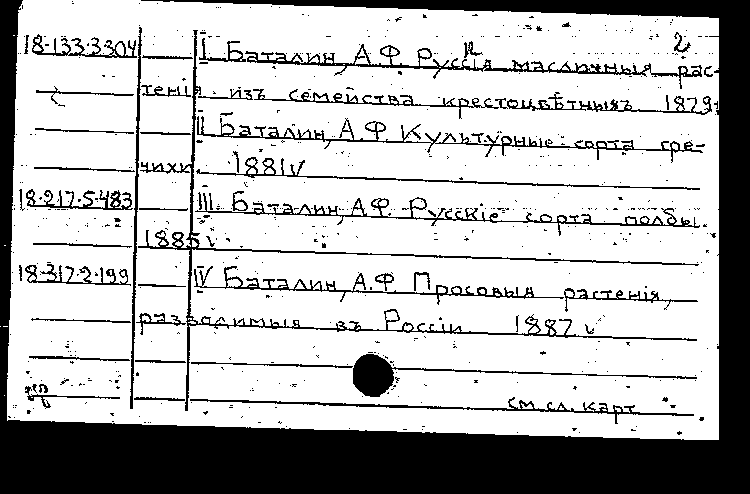 2
18-133-3304 I Баталин, А.Ф. Руссия масличныя рас-
тенія изъ семейства крестоцвѣтныхъ 1879
II Баталин, А.Ф. Культурные сорта гре-
чихи. 1881 v
18-217-5-483 III. Баталин, А.Ф. Русскіе сорта полбы.
1885 v
18-317-2-199 IV Баталин, А.Ф. Просовыя растенія,
разводимыя въ Россіи 1887 v
см. сл. карт